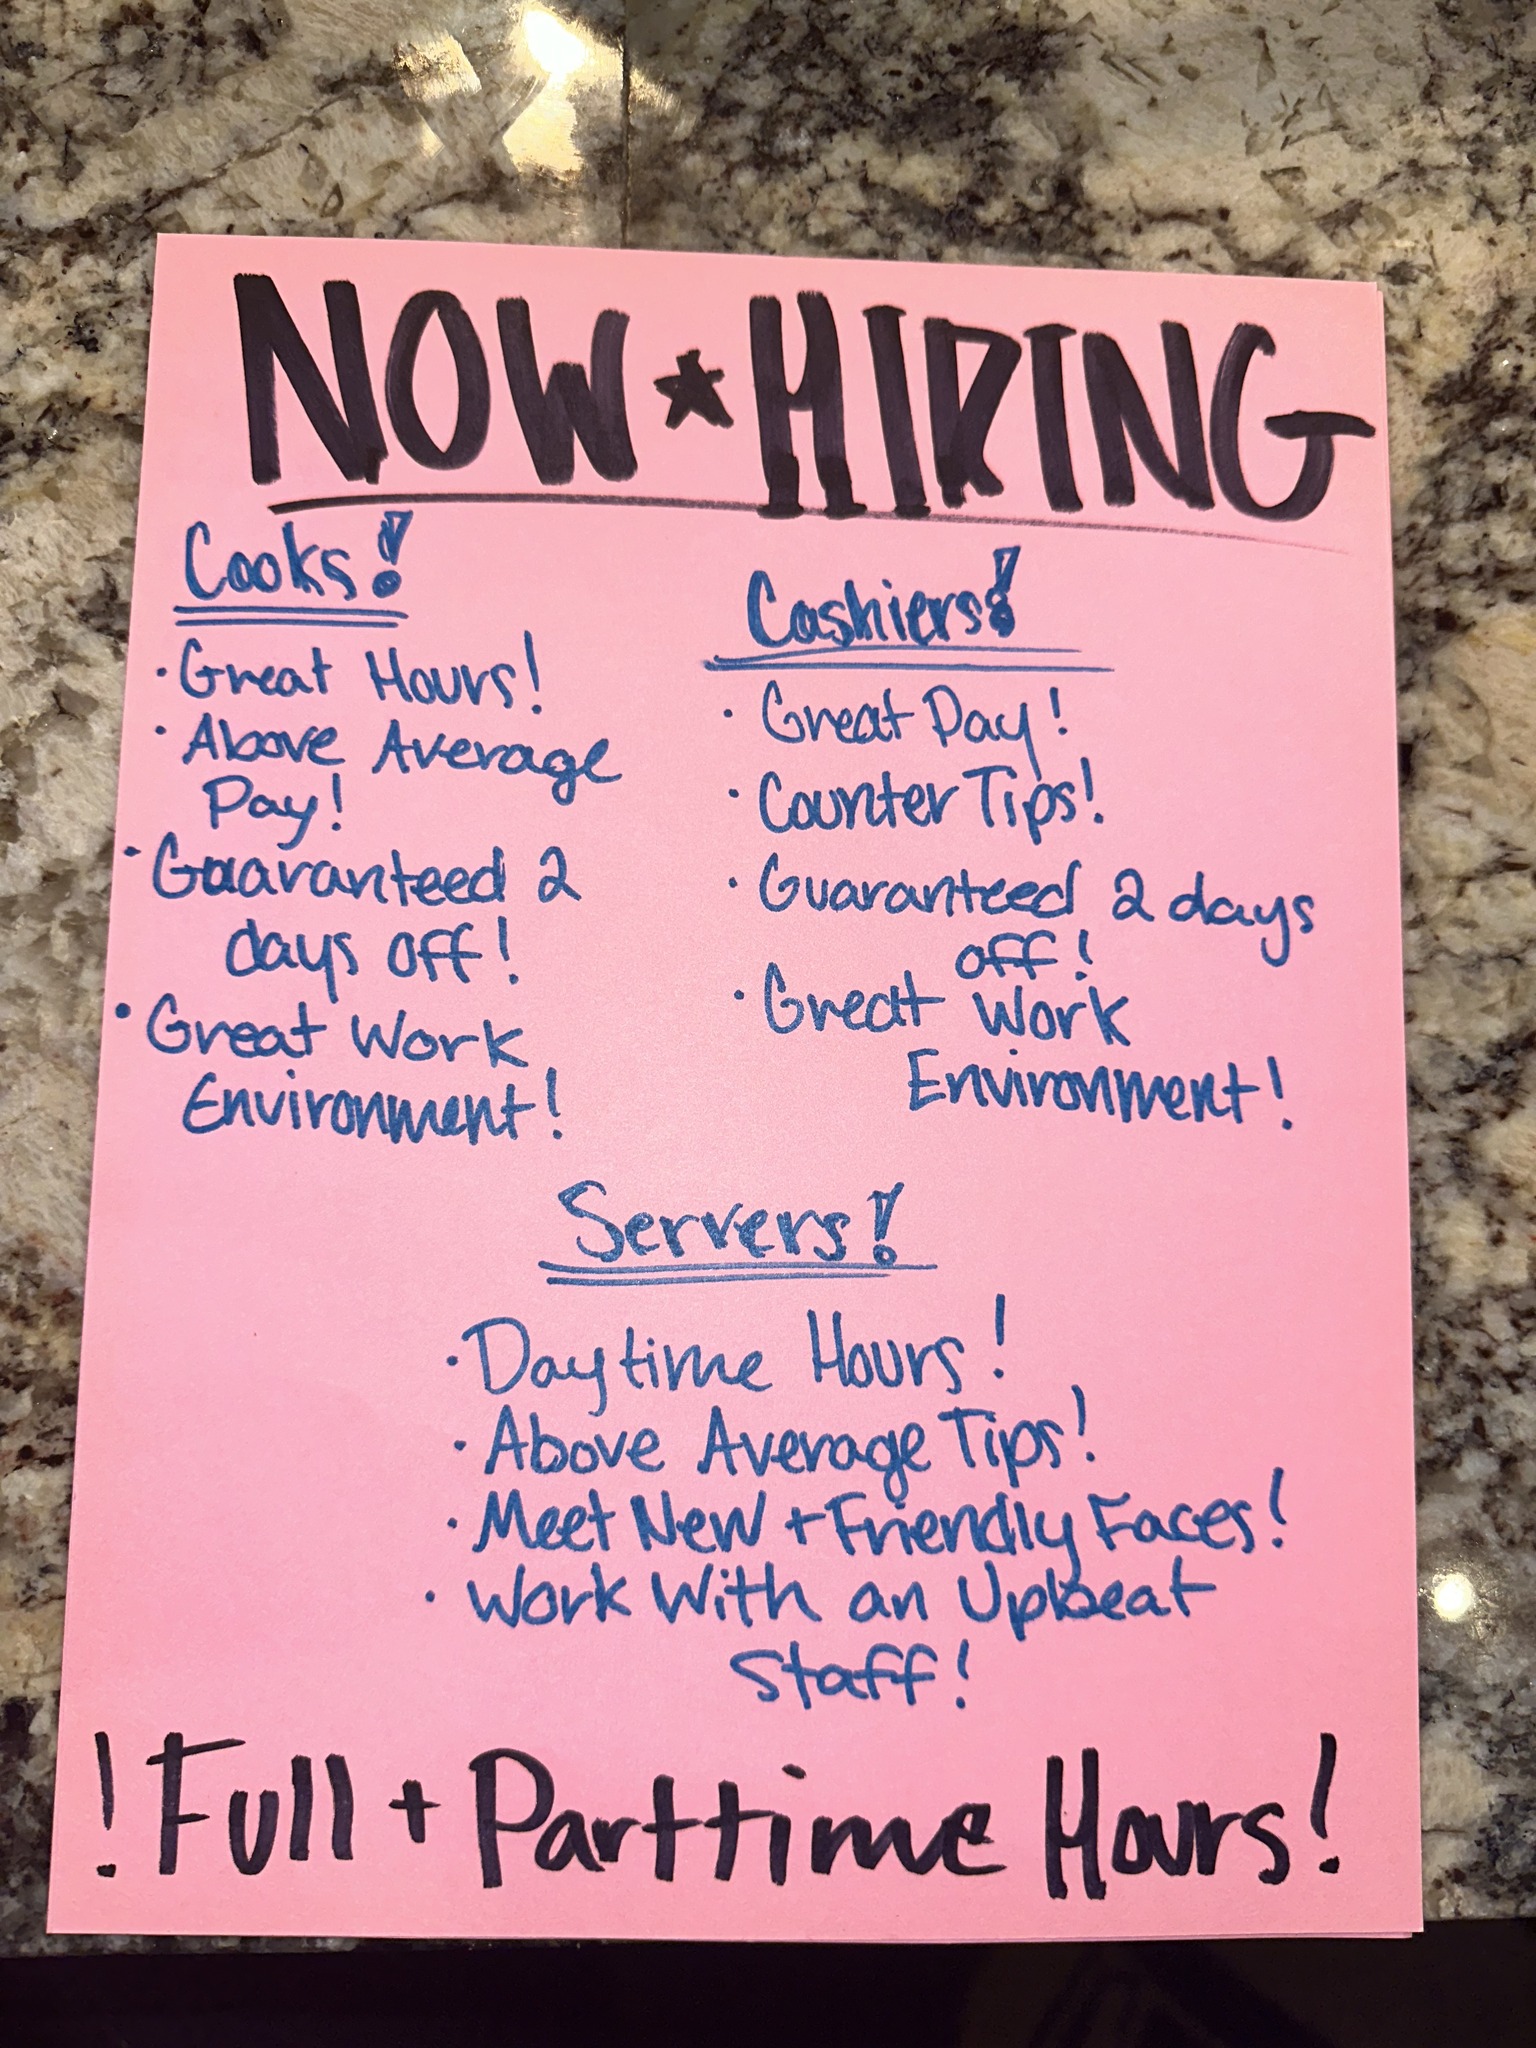 NOW★HIRING
Cooks!
• Great Hours!
• Above Average
Pay!
• Guaranteed 2
days off!
• Great Work
Environment!
Cashiers!
• Great Pay!
• Counter Tips!
• Guaranteed 2 days
off!
• Great Work
Environment!
Servers!
• Daytime Hours!
• Above Average Tips!
• Meet New + Friendly Faces!
• Work With an Upbeat
Staff!
! Full + Parttime Hours!